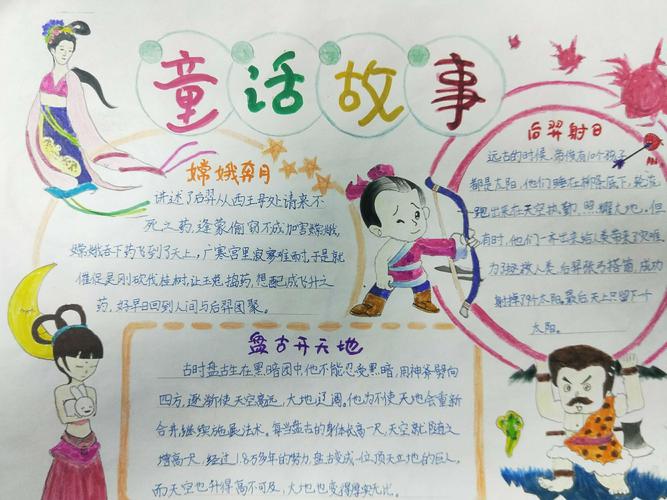 童话故事
嫦娥奔月
讲述了后羿从西王母处请来不
死之药,逢蒙偷窃不成加害嫦娥,
嫦娥吞下药飞到了天上,广寒宫里寂寥难耐,于是就
催促吴刚砍伐桂树,让玉兔捣药,想配成飞升之
药,好早日回到人间与后羿团聚。
后羿射日
远古的时候,帝俊有10个孩子
都是太阳,他们睡在树底下,轮流
跑出来在天空执勤,照耀大地,但
有时,他们一齐出来给人类带来了灾难
为了拯救人类,后羿张弓搭箭,成功
射掉了9个太阳。最后天上只留下一个
太阳。
盘古开天地
古时盘古生在黑暗团中,他不能忍受黑暗,用神斧劈向
四方,逐渐使天空高远,大地辽阔。他为不使天地会重新
合并继续施展法术。每当盘古的身体长高一尺,天空就随之
增高一尺,经过1.8万多年的努力,盘古变成一位顶天立地的巨人,
而天空也升得高不可及,大地也变得厚实无比。